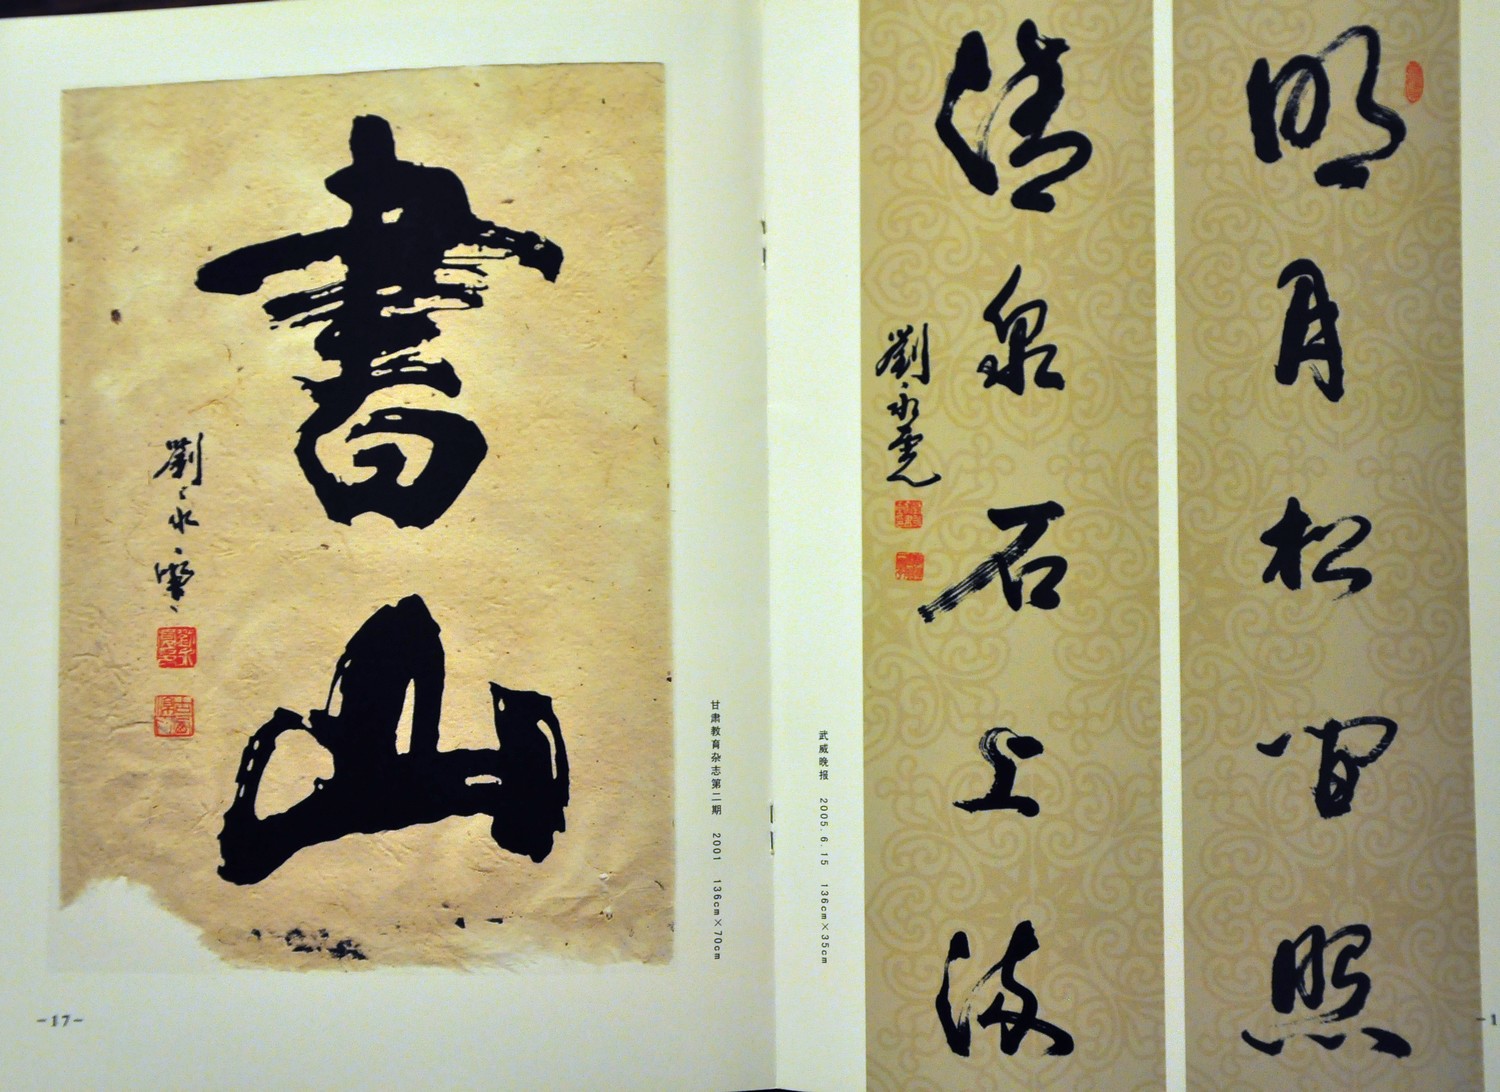 書山
劉永
甘肃教育杂志第二期 2001 136cm×70cm
-17-
明月松間照
清泉石上流
劉永
武威晚报 2005.6.15 136cm×35cm